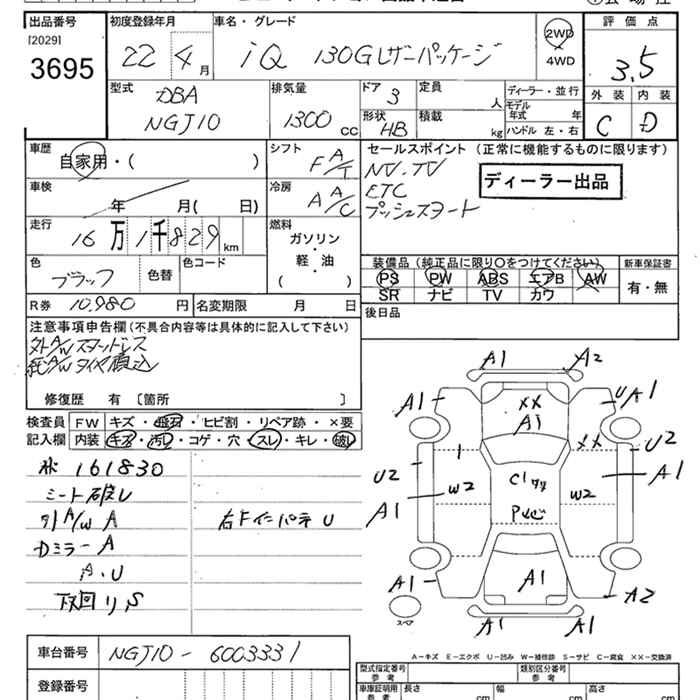 出品番号 初度登録年月 車名・グレード 評価点
[2029]
3695 22 4月 iQ 130Gレザーパッケージ 2WD 4WD 3.5
型式 DBA NGJ10
排気量 1300 CC
ドア 3 定員 人
形状 HB 積載 kg
ディーラー・並行
モデル年式 年
ハンドル 左・右
外装 内装
C D
車歴 自家用・( )
シフト F A/T
セールスポイント (正常に機能するものに限ります)
NV.TV
ETC
プッシュスタート
ディーラー出品
車検 年 月(日)
冷房 A A/C
走行 16万1千829 km
燃料 ガソリン・軽・油 ( )
色 ブラック 色替 色コード
装備品(純正品に限り○をつけてください) 新車保証書
PS PW ABS エアB AW 有・無
SR ナビ TV カワ
R券 10,980円 名変期限 月 日
後日品
注意事項申告欄(不具合内容等は具体的に記入して下さい)
外A/Wスタットレス
純A/Wタイヤ積込
修復歴 有 〔箇所 〕
検査員記入欄
FW キズ・飛石・ヒビ割・リペア跡・×要
内装 キズ・汚レ・コゲ・穴・スレ・キレ・破レ
161830
シート破レ
A/W A 右Fインパネ U
Dミラー A
A.U
下回り S
A1 A2
A1 XX A1 UA1
XX U2
U2 W2 W2 A1
A1
A1 A1 A2
A1 A1
スペア
A−キズ E−エクボ U−凹み W−補修跡 S−サビ C−腐食 ××−交換済
車台番号 NGJ10-6003331
登録番号
型式指定番号 参考 類別区分番号 参考
車庫証明用 参考 長さ cm 幅 cm 高さ cm